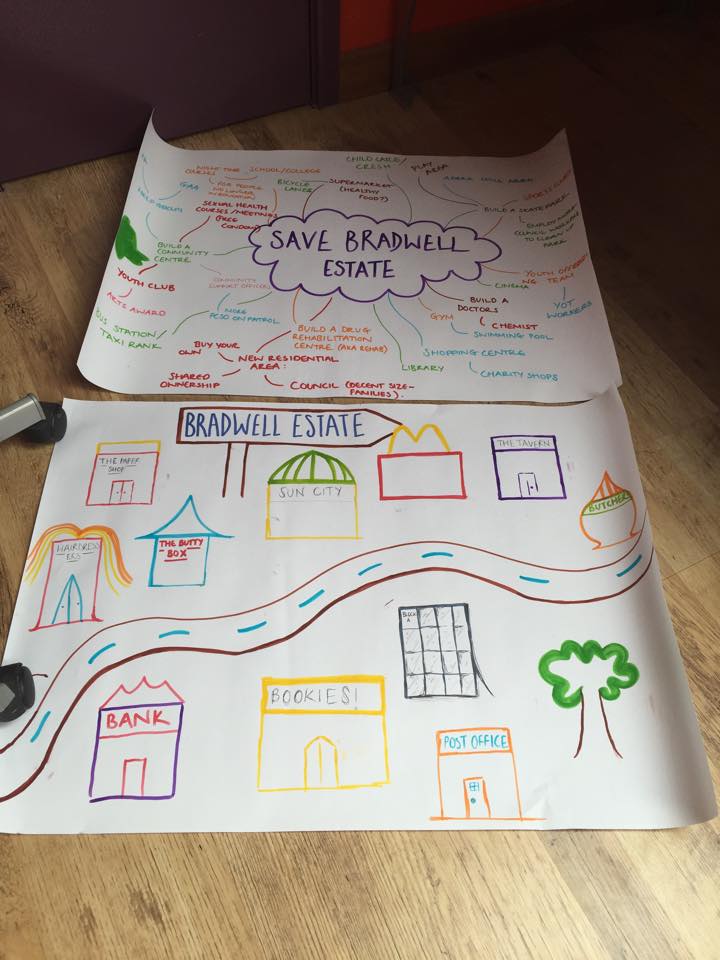 NIGHT TIME
COURSES
SCHOOL/COLLEGE
FOR PEOPLE
GAA
HELP
SEXUAL HEALTH
COURSES/MEETINGS
(FREE
CONDOMS)
BICYCLE
LANES
SUPERMARKET
(HEALTHY
FOOD?)
CHILD CARE/
CRESH
PLAY
AREA
BUILD A SKATE PARK
EMPLOY MORE
COUNCIL WORKERS
TO CLEAN UP
PARK
SAVE BRADWELL
ESTATE
BUILD A
COMMUNITY
CENTRE
YOUTH CLUB
ARTS AWARD
BUS STATION/
TAXI RANK
COMMUNITY
SUPPORT OFFICERS
MORE
PCSO ON PATROL
BUILD A DRUG
REHABILITATION
CENTRE (AKA REHAB)
BUY YOUR
OWN
NEW RESIDENTIAL
AREA:
SHARED
OWNERSHIP
COUNCIL (DECENT SIZE-
FAMILIES).
LIBRARY
SHOPPING CENTRE
CHARITY SHOPS
GYM
SWIMMING POOL
BUILD A
DOCTORS
CHEMIST
CINEMA
YOUTH OFFENDI
NG TEAM
YOT
WORKERS
BRADWELL ESTATE
THE PAPER
SHOP
SUN CITY
THE TAVERN
BUTCHER
HAIRDRESS
ERS
THE BUTTY
BOX
BLOCK
A
BANK
BOOKIES!
POST OFFICE